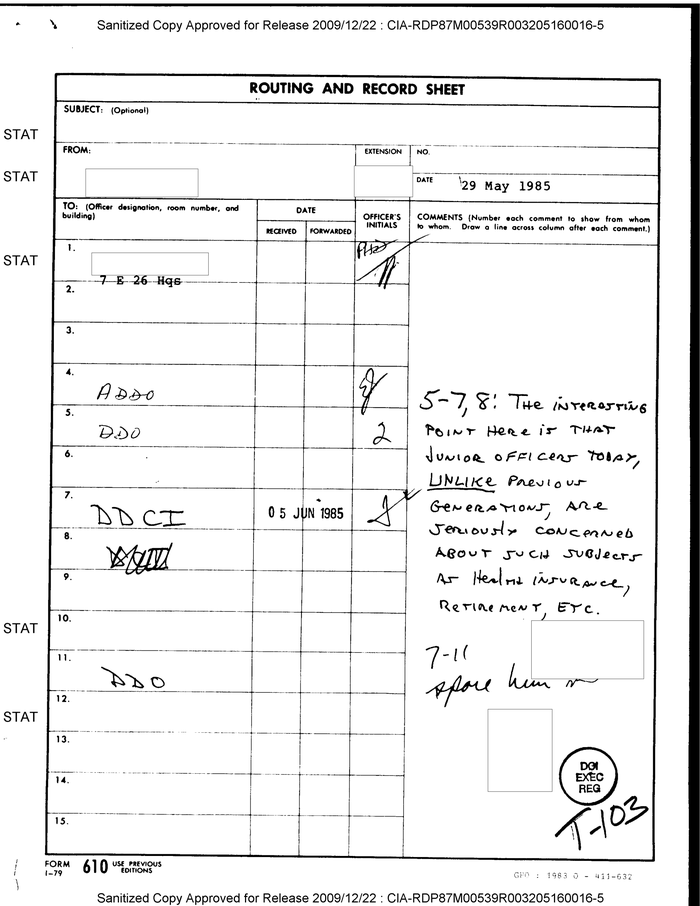 Sanitized Copy Approved for Release 2009/12/22 : CIA-RDP87M00539R003205160016-5
ROUTING AND RECORD SHEET
SUBJECT: (Optional)
STAT
FROM:
EXTENSION
NO.
STAT
DATE
29 May 1985
TO: (Officer designation, room number, and building)
DATE
RECEIVED
FORWARDED
OFFICER'S INITIALS
COMMENTS (Number each comment to show from whom to whom. Draw a line across column after each comment.)
STAT
1.
7 E 26 Hqs
2.
3.
4.
ADDO
5.
DDO
6.
7.
DDCI
05 JUN 1985
8.
9.
10.
STAT
11.
DDO
12.
STAT
13.
14.
15.
5-7,8: THE INTERESTING
POINT HERE IS THAT
JUNIOR OFFICERS TODAY,
UNLIKE PREVIOUS
GENERATIONS, ARE
SERIOUSLY CONCERNED
ABOUT SUCH SUBJECTS
AS HEALTH INSURANCE,
RETIREMENT, ETC.
7-11
DCI
EXEC
REG
T-103
FORM
1-79
610
USE PREVIOUS
EDITIONS
GPO : 1983 O - 411-632
Sanitized Copy Approved for Release 2009/12/22 : CIA-RDP87M00539R003205160016-5